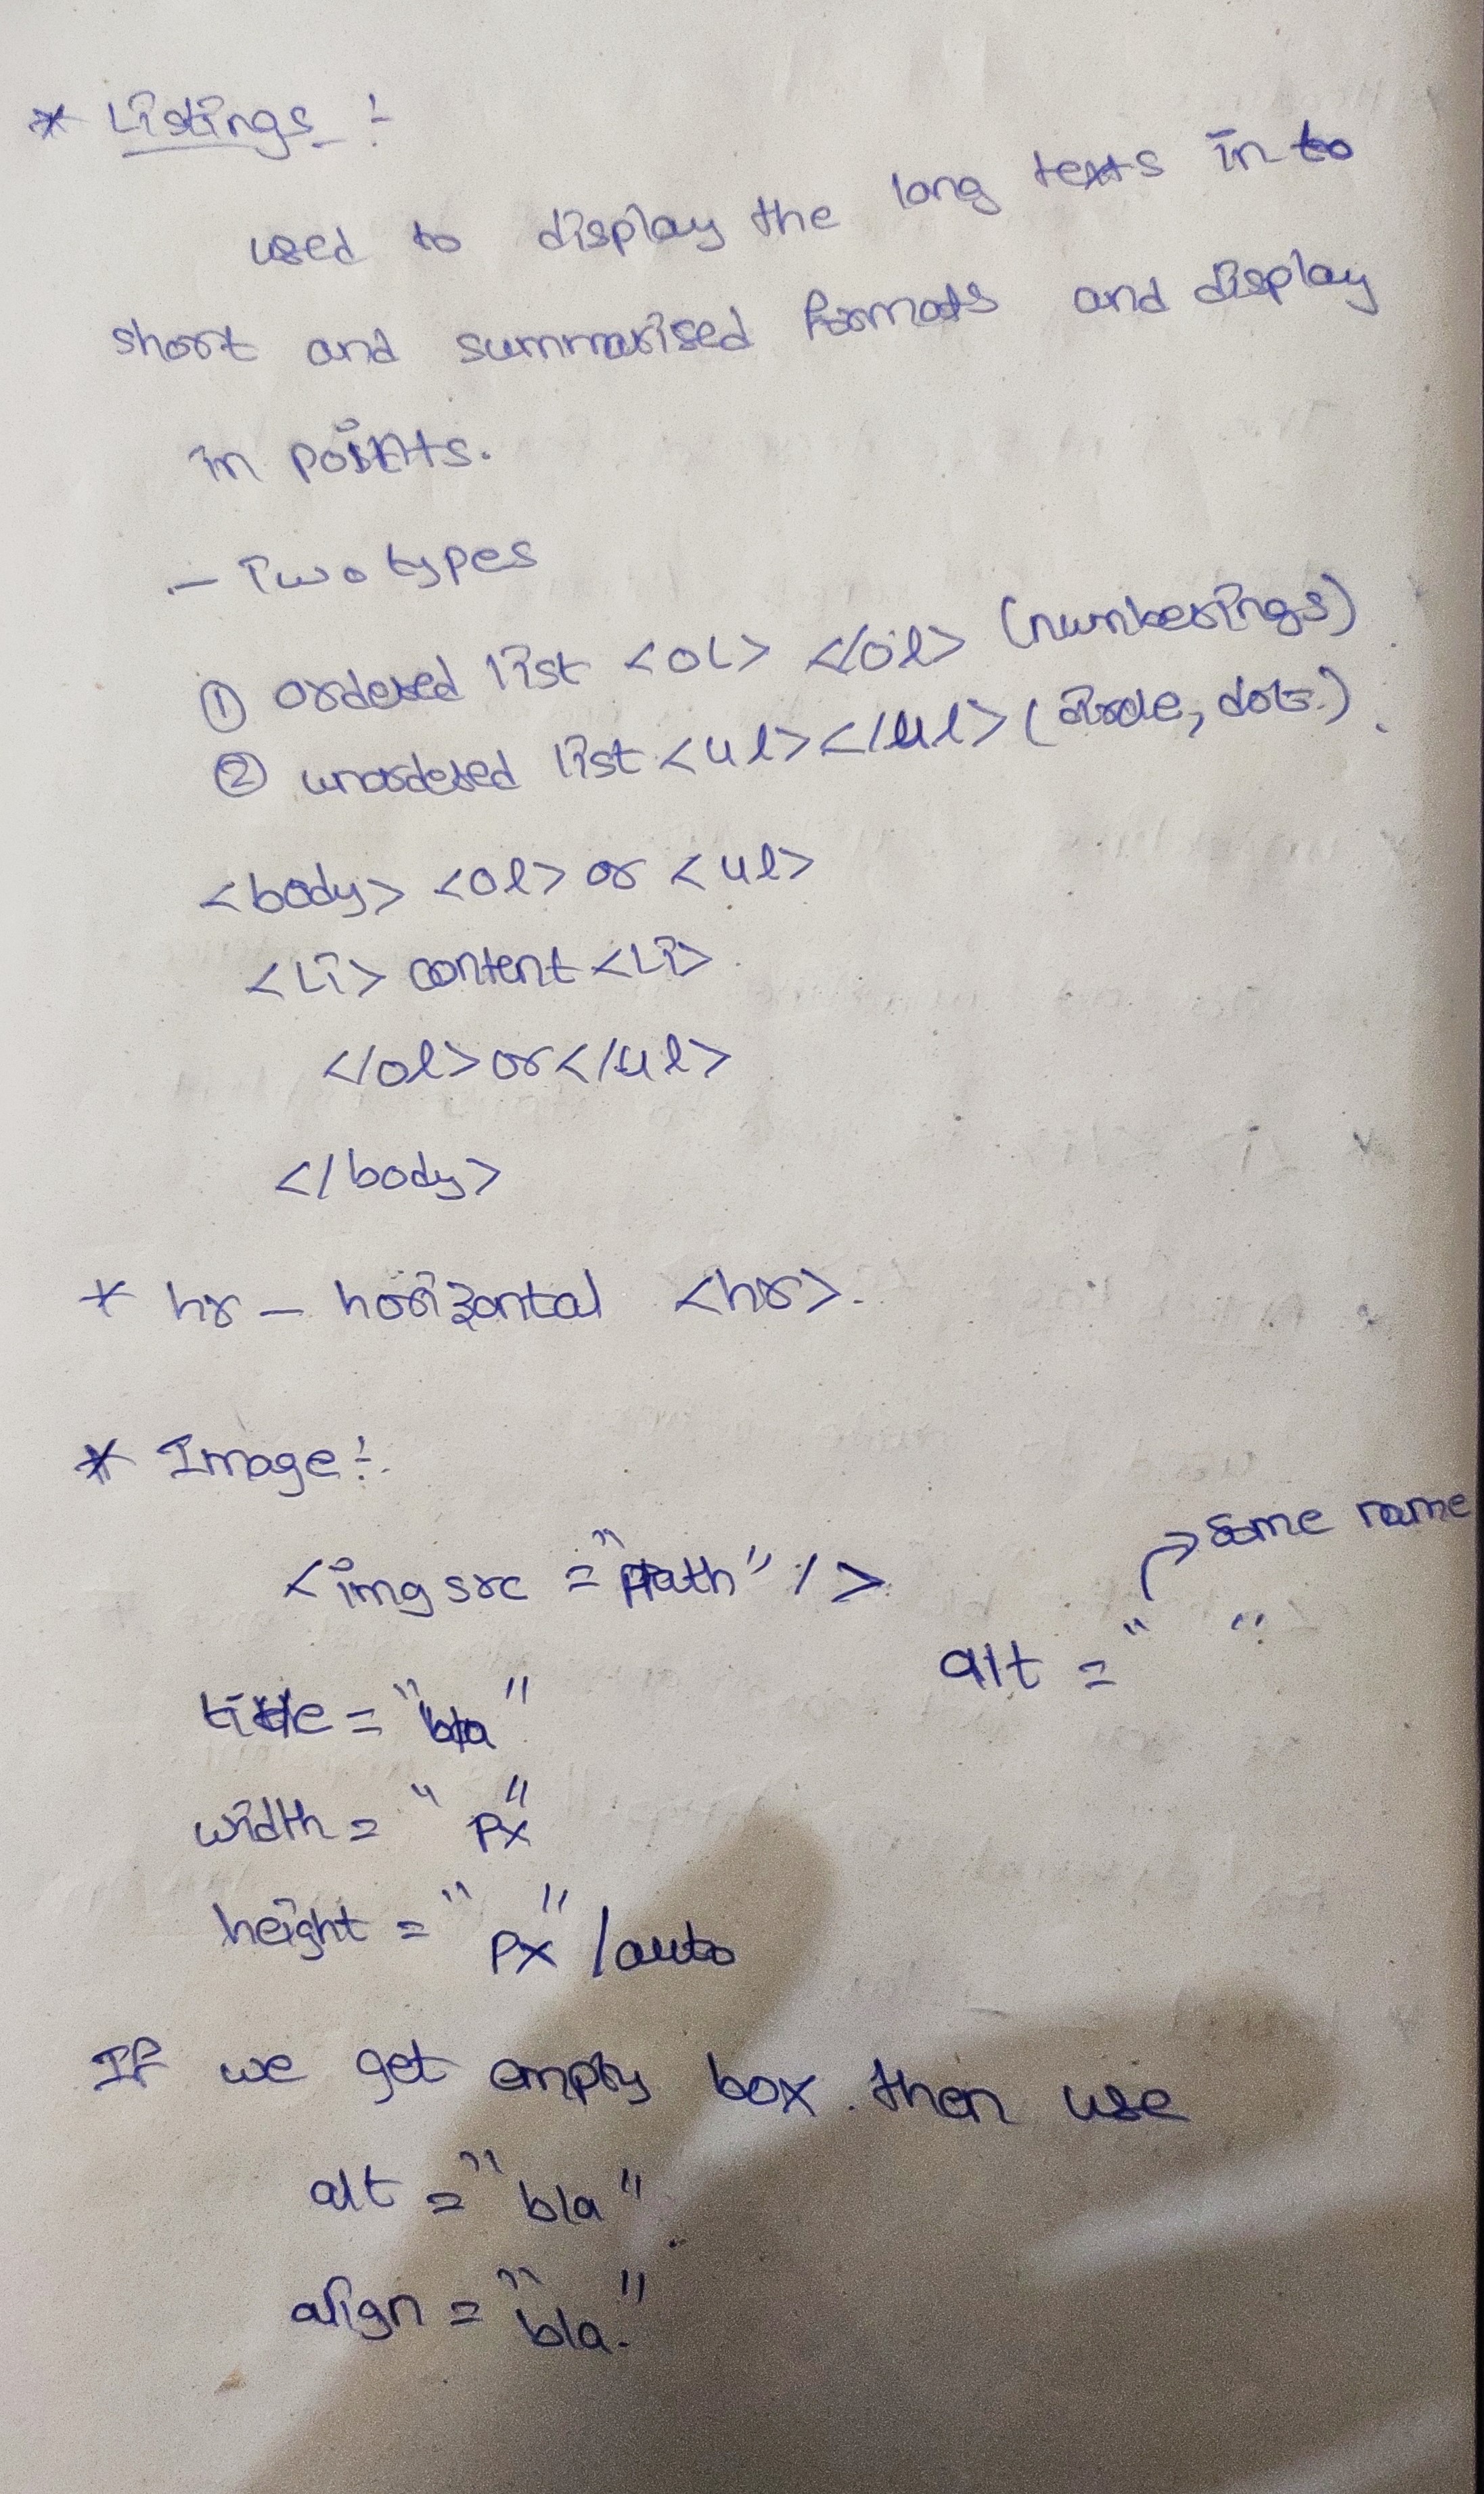 * Listings :-
used to display the long texts in to
short and summarised formats and display
in points.
- Two types
① ordered list <ol> </ol> (numberings)
② unordered list <ul></ul> (circle, dots.)
<body> <ol> or <ul>
<Li> content <Li>
</ol> or </ul>
</body>
* hr - horizontal <hr>.
* Image :-
<img src = "path" />
alt = " " → some name
title = "bla"
width = " px"
height = " px" / auto
If we get empty box. then use
alt = "bla"
align = "bla."